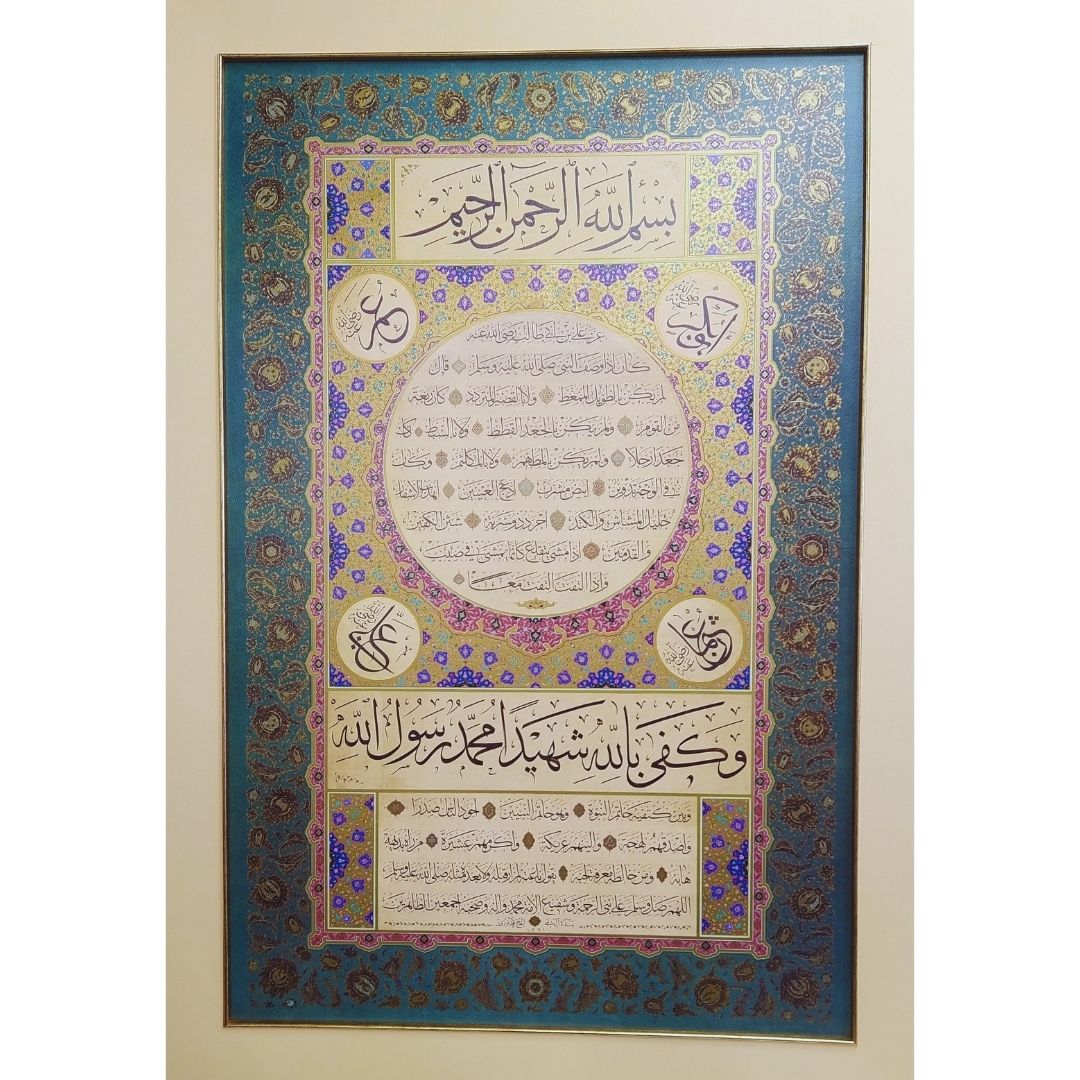 بِسْمِ اللّٰهِ الرَّحْمٰنِ الرَّحِيمِ
ابوبكر رضى الله عنه
عمر رضى الله عنه
عن على بن ابى طالب رضى الله عنه
كان اذا وصف النبى صلى الله عليه وسلم قال
لم يكن بالطويل الممغط ولا بالقصير المتردد كان ربعة
من القوم ولم يكن بالجعد القطط ولا بالسبط كان
جعدا رجلا ولم يكن بالمطهم ولا بالمكلثم وكان
فى الوجه تدوير ابيض مشرب ادعج العينين اهدب الاشفار
جليل المشاش والكتد اجرد ذو مسربة شثن الكفين
والقدمين اذا مشى يتقلع كانما يمشى فى صبب
واذا التفت التفت معا
عثمان رضى الله عنه
على رضى الله عنه
وَكَفٰى بِاللّٰهِ شَهِيدًا مُحَمَّدٌ رَسُولُ اللّٰهِ
وبين كتفيه خاتم النبوة وهو خاتم النبيين اجود الناس صدرا
واصدقهم لهجة والينهم عريكة واكرمهم عشيرة من رآه بديهة
هابه ومن خالطه معرفة احبه يقول ناعته لم ار قبله ولا بعده مثله صلى الله عليه وسلم
اللهم صل وسلم على نبى الرحمة وشفيع الامة محمد وآله وصحبه اجمعين الطاهرين